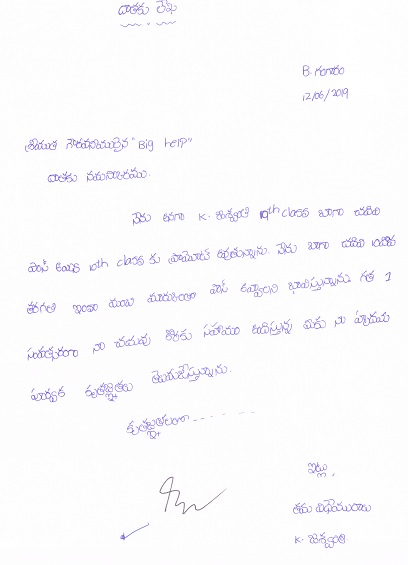 దాతకు లేఖ
B. గంగారం
12/06/2019
శ్రీయుత గౌరవనీయులైన "Big help"
దాతకు నమస్కారము.
నేను అనగా K. జశ్వంతి 9th class బాగా చదివి
పాస్ అయ్యి 10th class కు ప్రామోట్ అవుతున్నాను. నేను బాగా చదివి 10వ
తరగతి కూడా మంచి మార్కులతో పాస్ అవ్వాలని భావిస్తున్నాను. గత 1
సంవత్సరంగా నా చదువు కొరకు సహాయం అందిస్తున్న మీకు నా హృదయ
పూర్వక కృతజ్ఞతలు తెలుపుచేస్తున్నాను.
కృతజ్ఞతలతో - - - - - -
ఇట్లు,
తమ విధేయురాలు
K. జశ్వంతి